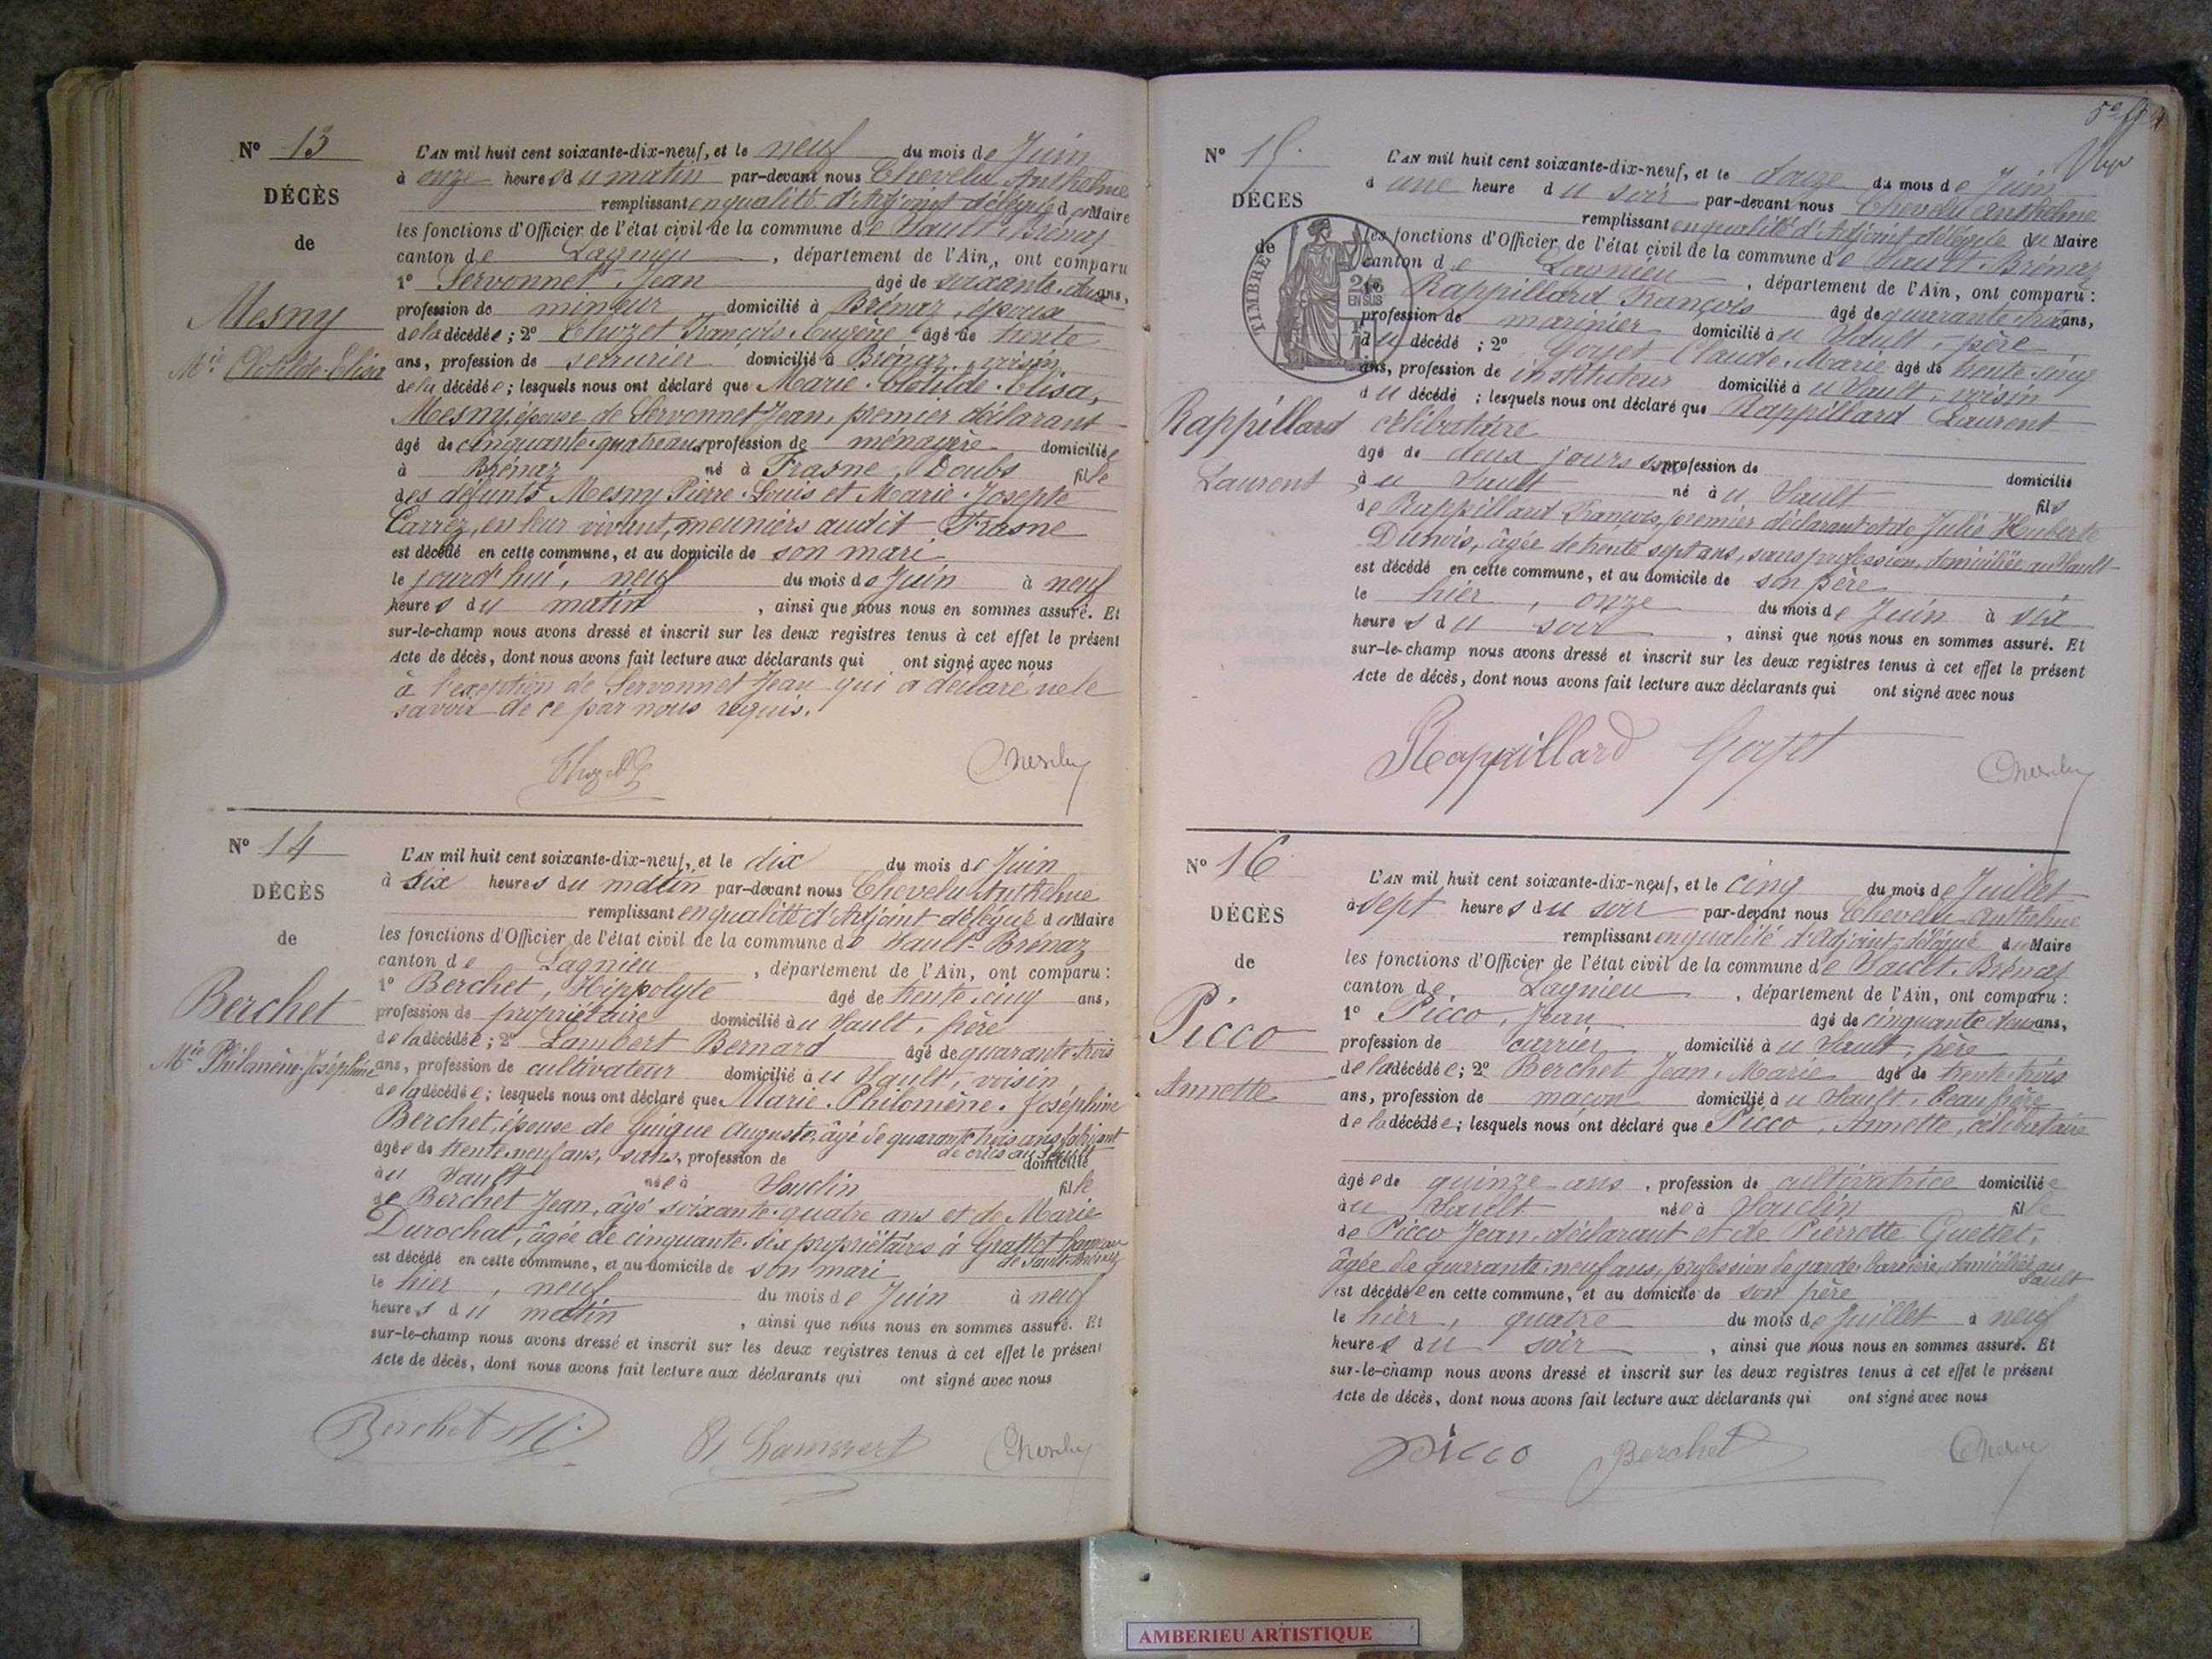 Nº 13
DÉCÈS
de
Mesny
Mie Clotilde-Elisa
L'AN mil huit cent soixante-dix-neuf, et le neuf du mois de Juin
à onze heures du matin par-devant nous Chevelu Anthelme
remplissant en qualité d'Adjoint délégué du Maire
les fonctions d'Officier de l'état civil de la commune de Sault-Brénaz
canton de Lagnieu, département de l'Ain, ont comparu
1º Servonnet Jean âgé de soixante-deux ans,
profession de mineur domicilié à Brénaz, époux
de la décédée; 2º Chozet François-Eugène âgé de trente
ans, profession de serrurier domicilié à Brénaz, voisin
de la décédée; lesquels nous ont déclaré que Marie-Clotilde-Elisa,
Mesny, épouse de Servonnet Jean, premier déclarant
âgé de cinquante-quatre ans profession de ménagère domiciliée
à Brénaz né à Frasne, Doubs fille
des défunts Mesny Pierre-Louis et Marie-Josepte
Carrez, en leur vivant, meuniers audit Frasne
est décédé en cette commune, et au domicile de son mari
le jourd'hui, neuf du mois de Juin à neuf
heures du matin, ainsi que nous nous en sommes assuré. Et
sur-le-champ nous avons dressé et inscrit sur les deux registres tenus à cet effet le présent
Acte de décès, dont nous avons fait lecture aux déclarants qui ont signé avec nous
à l'exeption de Servonnet Jean qui a déclaré ne le
savoir de ce par nous requis.
Nº 14
DÉCÈS
de
Berchet
Mie Philomène-Joséphine
L'AN mil huit cent soixante-dix-neuf, et le dix du mois de Juin
à six heures du matin par-devant nous Chevelu Anthelme
remplissant en qualité d'Adjoint délégué du Maire
les fonctions d'Officier de l'état civil de la commune de Sault-Brénaz
canton de Lagnieu, département de l'Ain, ont comparu:
1º Berchet, Hippolyte âgé de trente-cinq ans,
profession de propriétaire domicilié au Sault, frère
de la décédée; 2º Lambert Bernard âgé de quarante-trois
ans, profession de cultivateur domicilié au Sault, voisin
de la décédée; lesquels nous ont déclaré que Marie-Philomène-Joséphine
Berchet, épouse de Guigue Auguste, âgé de quarante trois ans, fabricant
âgée de trente-neuf ans, sans, profession de domicilié
au Sault née à Souclin fille
de Berchet Jean, âgé soixante-quatre ans et de Marie
Durochat, âgée de cinquante-six propriétaires à Grattet hameau
de Sault-Brénaz
est décédé en cette commune, et au domicile de son mari
le hier, neuf du mois de Juin à neuf
heures du matin, ainsi que nous nous en sommes assuré. Et
sur-le-champ nous avons dressé et inscrit sur les deux registres tenus à cet effet le présent
Acte de décès, dont nous avons fait lecture aux déclarants qui ont signé avec nous
Berchet H.
Lambert
Nº 15
DÉCÈS
de
TIMBRE
2/10
EN SUS
Rappillard
Laurent
L'AN mil huit cent soixante-dix-neuf, et le douze du mois de Juin
à une heure du soir par-devant nous Chevelu Anthelme
remplissant en qualité d'Adjoint délégué du Maire
les fonctions d'Officier de l'état civil de la commune de Sault-Brénaz
canton de Lagnieu, département de l'Ain, ont comparu:
1º Rappillard François âgé de quarante-trois ans,
profession de marinier domicilié au Sault, père
du décédé; 2º Goyet Claude-Marie âgé de trente-cinq
ans, profession de instituteur domicilié au Sault, voisin
du décédé; lesquels nous ont déclaré que Rappillard Laurent
célibataire
âgé de deux jours profession de domicilié
au Sault né au Sault fils
de Rappillard François, premier déclarant et de Julie Huberte
Dunois, âgée de trente sept ans, sans profession, domiciliée au Sault
est décédé en cette commune, et au domicile de son père
le hier, onze du mois de Juin à six
heures du soir, ainsi que nous nous en sommes assuré. Et
sur-le-champ nous avons dressé et inscrit sur les deux registres tenus à cet effet le présent
Acte de décès, dont nous avons fait lecture aux déclarants qui ont signé avec nous
Rappillard Goyet
Nº 16
DÉCÈS
de
Picco
Annette
L'AN mil huit cent soixante-dix-neuf, et le cinq du mois de Juillet
à sept heures du soir par-devant nous Chevelu Anthelme
remplissant en qualité d'Adjoint délégué du Maire
les fonctions d'Officier de l'état civil de la commune de Sault-Brénaz
canton de Lagnieu, département de l'Ain, ont comparu:
1º Picco, Jean âgé de cinquante-deux ans,
profession de carrier domicilié au Sault, père
de la décédée; 2º Berchet Jean-Marie âgé de trente-trois
ans, profession de maçon domicilié au Sault, beau frère
de la décédée; lesquels nous ont déclaré que Picco, Annette, célibataire
âgée de quinze ans, profession de cultivatrice domiciliée
au Sault née à Souclin fille
de Picco Jean, déclarant et de Pierrette Guettet,
âgée de quarante-neuf ans, profession de garde-barrière, domiciliée au
Sault
est décédée en cette commune, et au domicile de son père
le hier, quatre du mois de Juillet à neuf
heures du soir, ainsi que nous nous en sommes assuré. Et
sur-le-champ nous avons dressé et inscrit sur les deux registres tenus à cet effet le présent
Acte de décès, dont nous avons fait lecture aux déclarants qui ont signé avec nous
Picco Berchet
AMBERIEU ARTISTIQUE